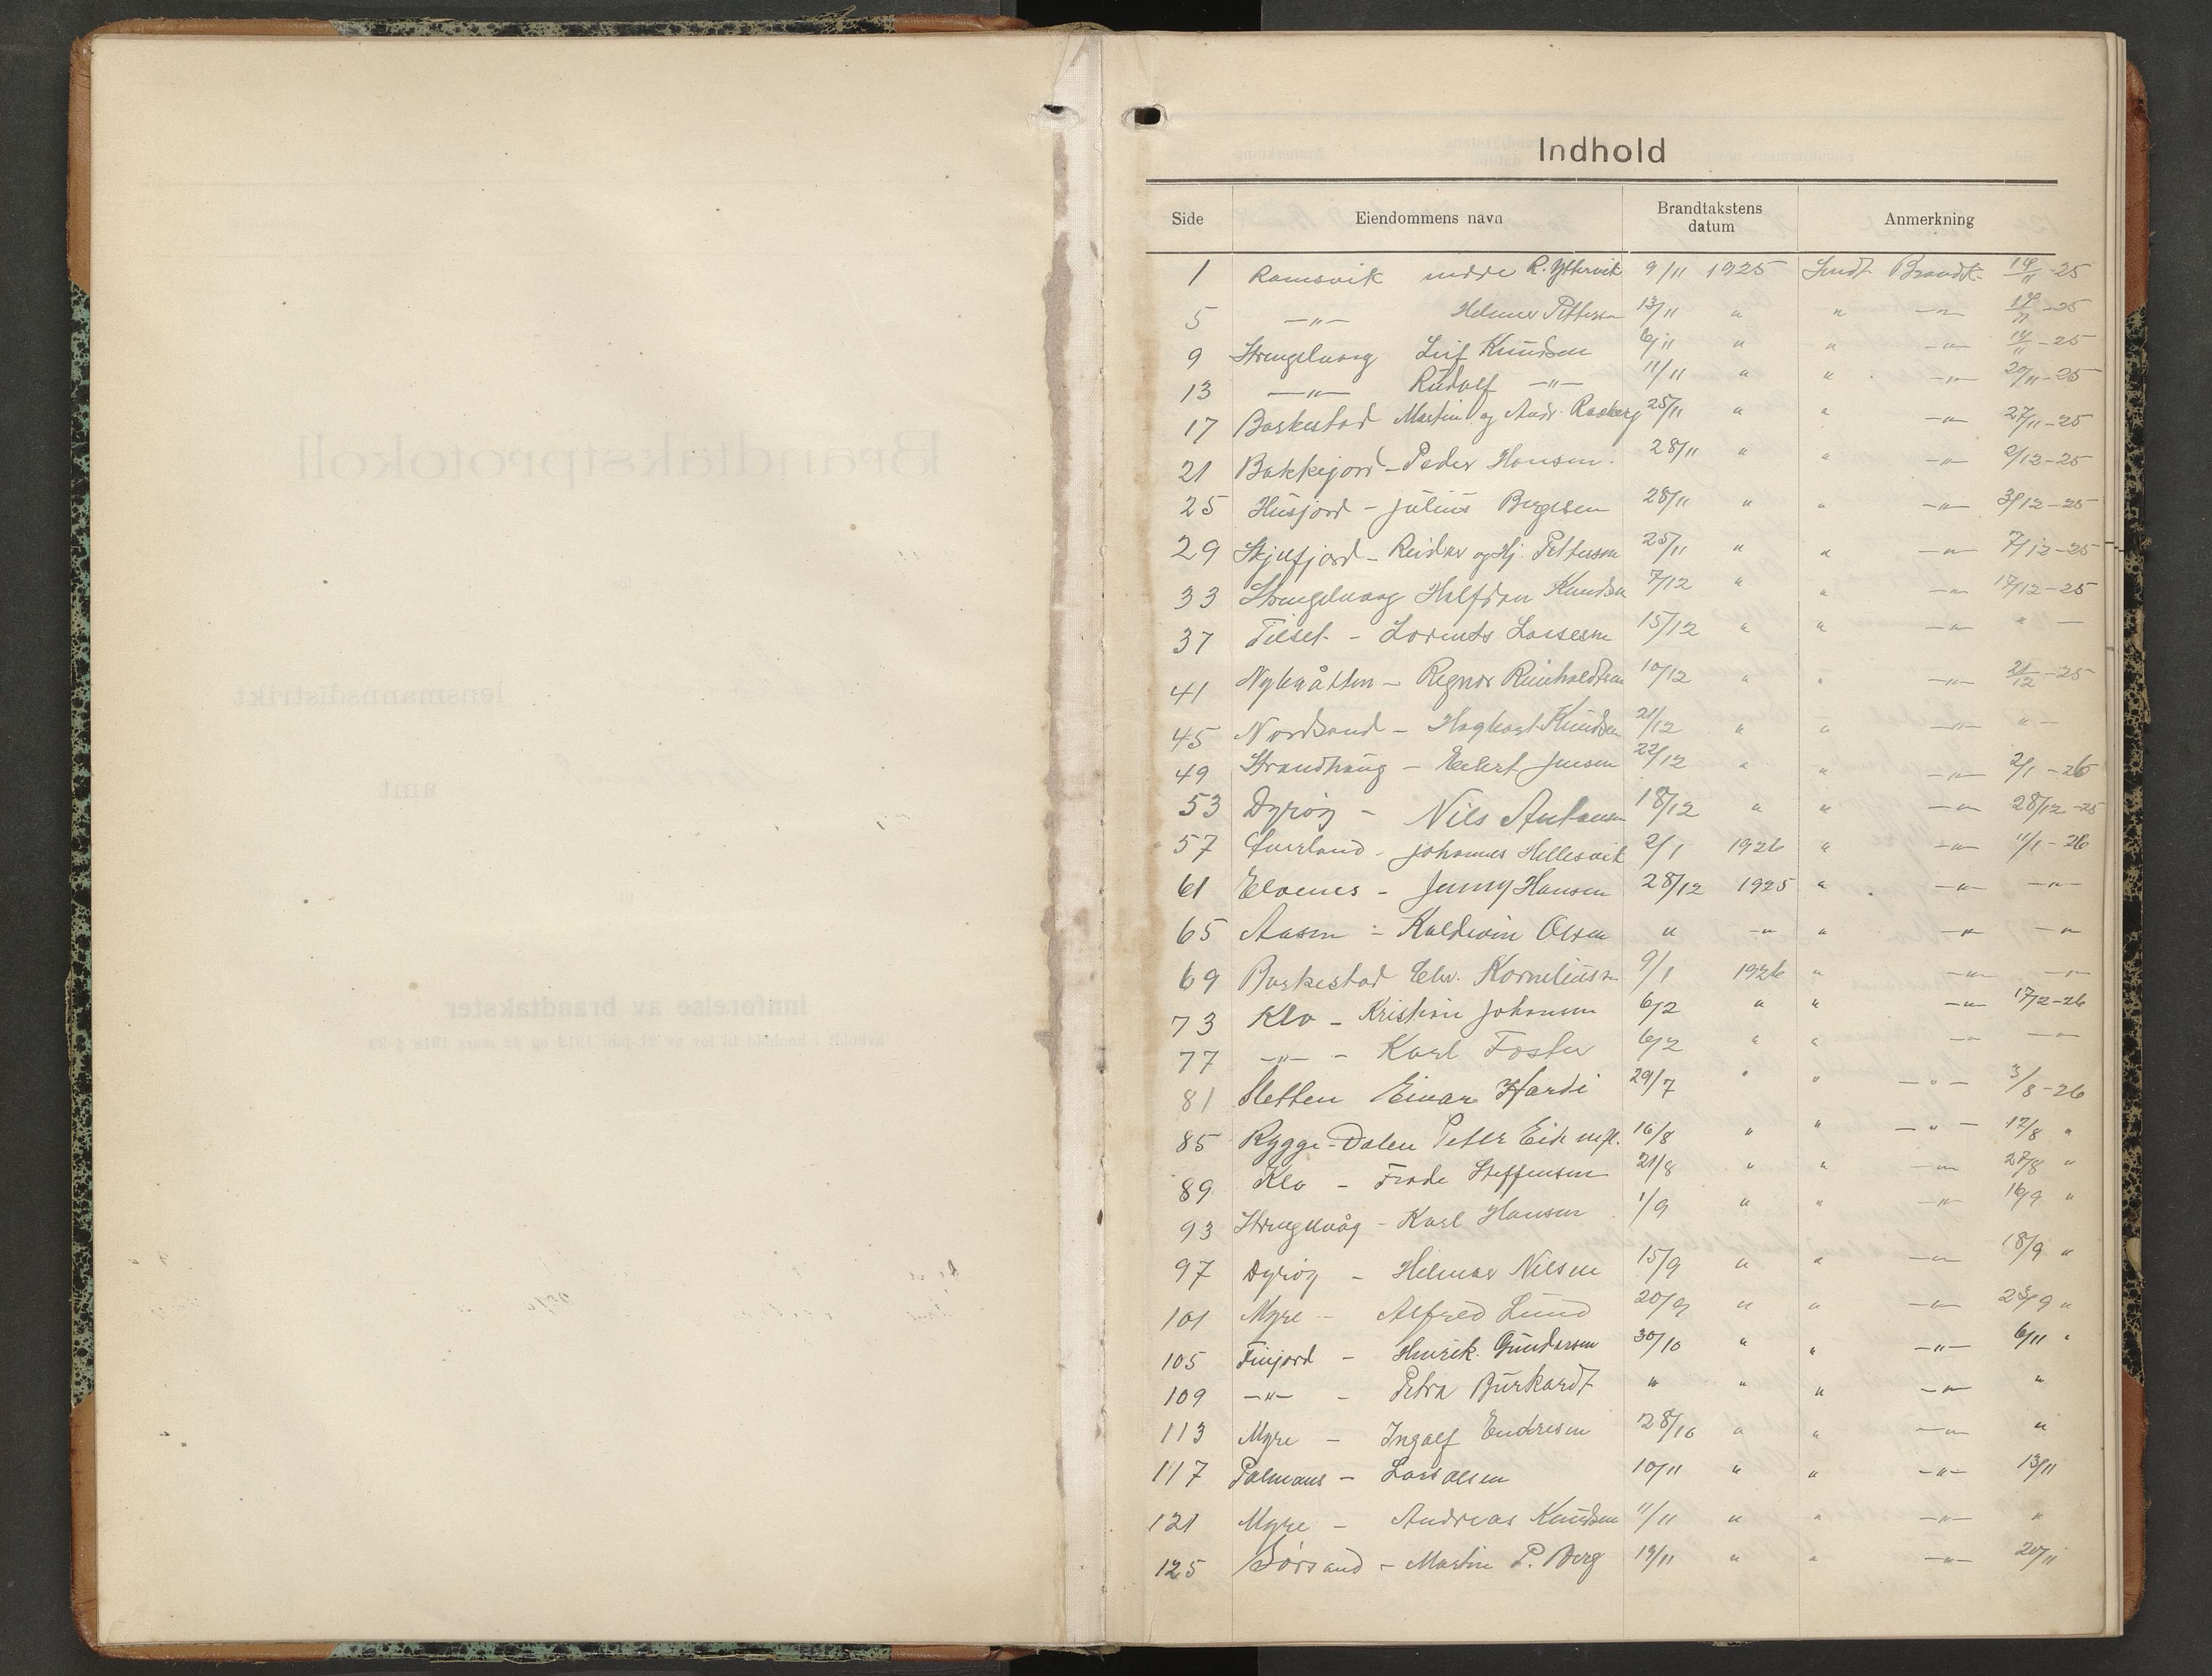 Indhold
Side Eiendommens navn Brandtakstens datum Anmerkning
1 Ramsvik nedre R. Yttervik 9/11 1925 Sendt Brandk. 14/11-25
5 —"— Helmer Pettersen 13/11 " " —"— 14/11-25
9 Strengelvaag Leif Knudsen 6/11 " " —"— 14/11-25
13 —"— Rudolf —"— 11/11 " " —"— 20/11-25
17 Barkestad Martin og Andr. Rasberg 25/11 " " —"— 27/11-25
21 Bakkejord - Peder Hansen. 28/11 " " —"— 2/12-25
25 Husjord - Julius Bergesen 28/11 " " —"— 3/12-25
29 Skjelfjord - Reidar og Hj. Pettersen 25/11 " " —"— 7/12-25
33 Strengelvaag Halfdan Knudsen 7/12 " " —"— 17/12-25
37 Tilset - Lorents Lassesen 15/12 " " —"— " —
41 - Regnor Reinholdtsen 10/12 " " —"— 21/12-25
45 Nordsand - Haghart Knudsen 21/12 " " —"— " —
49 Strandhaug - Eilert Jensen 22/12 " " —"— 2/1-26
53 Dyrøy - Nils Antonsen 18/12 " " —"— 28/12-25
57 - Johannes Hellesvik 2/1 1926 " —"— 11/1-26
61 Elvenes - Jenny Hansen 28/12 1925 " —"— —"—
65 Aasen - Kaldivin Olsen " —"— " —"— —"—
69 Barkestad Edv. Korneliussen 9/1 1926 " —"— —"—
73 Klo - Kristian Johansen 6/2 " " —"— 17/2-26
77 —"— - Karl Foster 6/2 " " —"— —"—
81 Sletten Einar Hardi 29/7 " " —"— 3/8-26
85 Rygge-Dalen Petter Eid m.fl. 16/8 " " —"— 17/8 "
89 Klo - Frode Steffensen 21/8 " " —"— 27/8 "
93 Strengelvåg - Karl Hansen 1/9 " " —"— 16/9 "
97 Dyrøy - Helmer Nilsen 15/9 " " —"— 18/9 "
101 Myre - Alfred Lund 20/9 " " —"— 23/9 "
105 Finjord - Henrik Gundersen 30/10 " " —"— 6/11 "
109 —"— - Petra Burkardt " " " —"— "
113 Myre - Ingolf Endresen 28/10 " " —"— "
117 - Lars Olsen 10/11 " " —"— 13/11
121 Myre - Andreas Knudsen 11/11 " " —"— "
125 Sørsand - Martin P. Berg 19/11 " " —"— 20/11